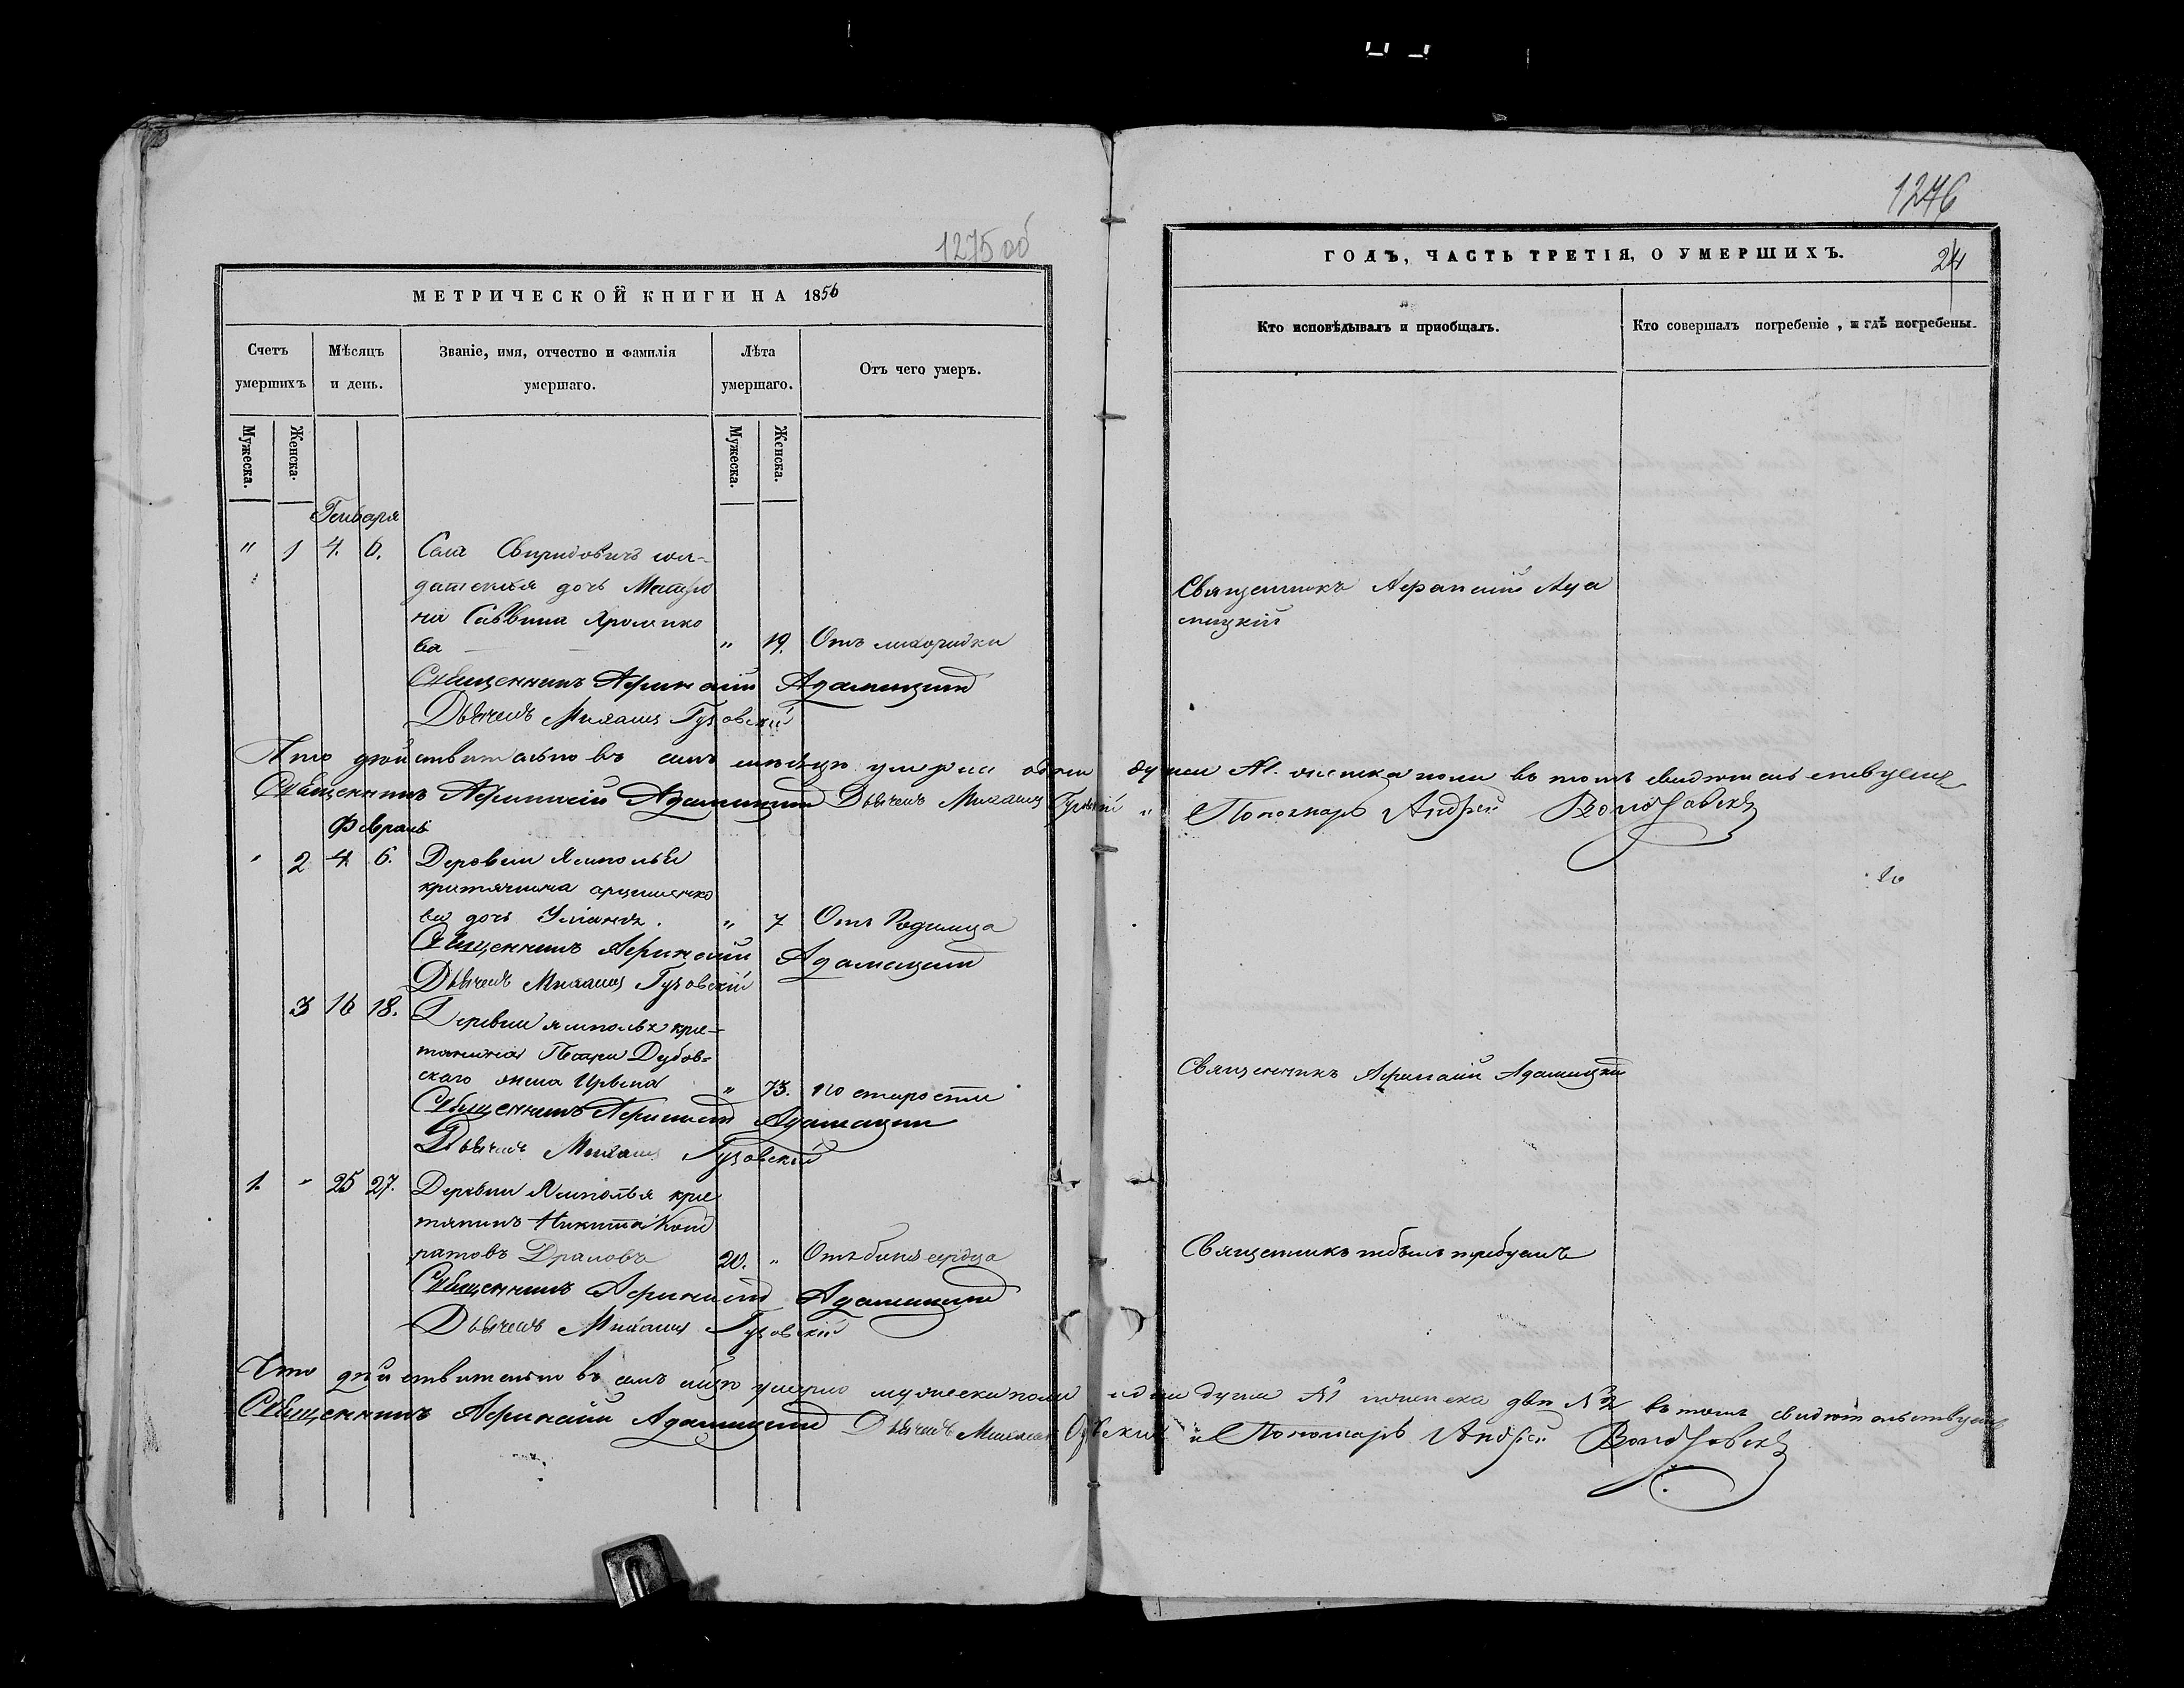 1275 об
МЕТРИЧЕСКОЙ КНИГИ НА 1856
Счетъ умершихъ
Мѣсяцъ и день.
Званіе, имя, отчество и фамилія умершаго.
Лѣта умершаго.
Отъ чего умеръ.
Мужеска.
Женска.
Мужеска.
Женска.
Генваря
" 1 4. 6. Села Свиридовичъ сол-
датская дочь Матро
на Саввина
ва " 19. Отъ лихорадки
Священникъ Афанасій Адамицкій
Дьячекъ Михаилъ Гузовскій
Что дѣйствительно въ семъ мѣсяцѣ умерла одна душа №1. женска пола въ томъ свидѣтельствуемъ
Священникъ Афанасій Адамицкій Дьячекъ Михаилъ Гузовскій и Пономарь Андрей
Февраль
" 2 4 6. Деревни Ямполья
крестьянина
ва дочь " 7 Отъ Родимца
Священникъ Афанасій Адамицкій
Дьячекъ Михаилъ Гузовскій
3 16 18. Деревни Ямполья крес-
тьянина Дубов-
скаго жена " 73. по старости
Священникъ Афанасій Адамицкій
Дьячекъ Михаилъ Гузовскій
1. " 25 27. Деревни Ямполья крес
тьянинъ Никита Конд
ратовъ 20. "
Священникъ Афанасій Адамицкій
Дьячекъ Михаилъ Гузовскій
Что дѣйствительно въ семъ умерло мужеска пола одна душа №1 женска двѣ №2 въ томъ свидѣтельствуемъ
Священникъ Афанасій Адамицкій Дьячекъ Михаилъ Гузовскій и Пономарь Андрей
1276
ГОДЪ, ЧАСТЬ ТРЕТІЯ, О УМЕРШИХЪ.
24
Кто исповѣдывалъ и приобщалъ.
Кто совершалъ погребеніе, и гдѣ погребены.
Священникъ Афанасій Ада
мицкій
Священникъ Афанасій Адамицкій
Священникъ небылъ требуемъ